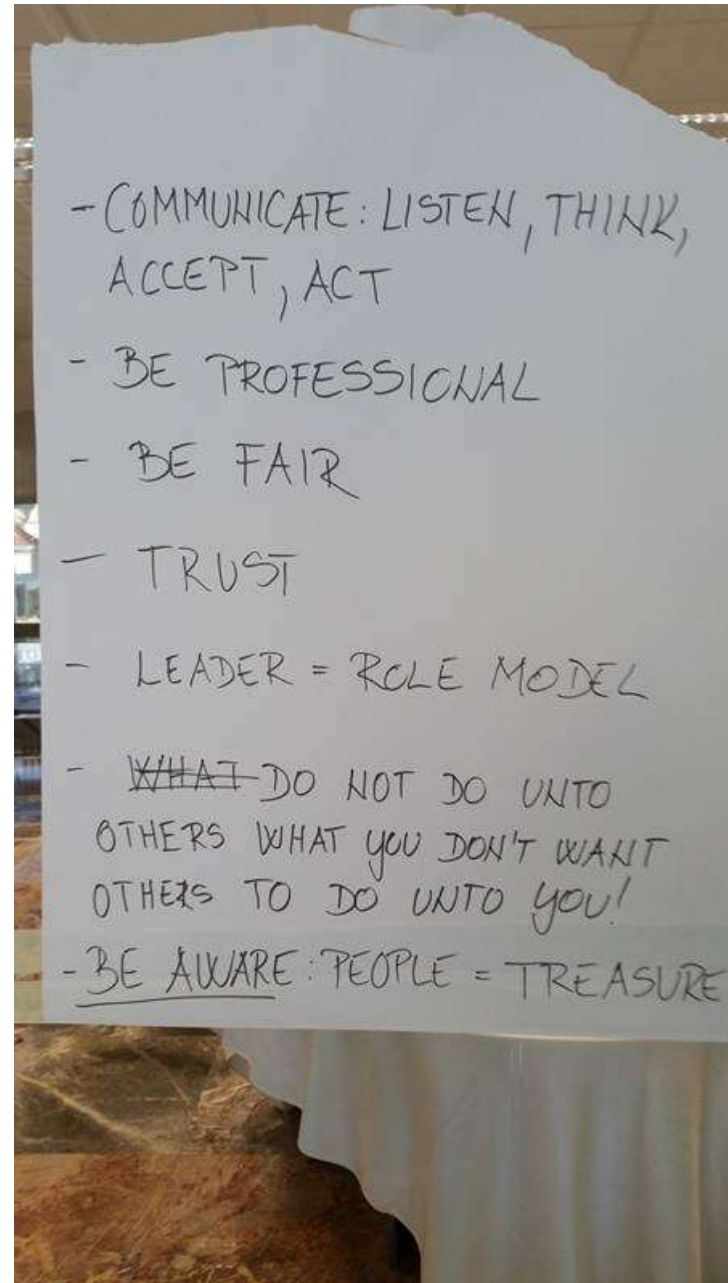 - COMMUNICATE: LISTEN, THINK,
ACCEPT, ACT
- BE PROFESSIONAL
- BE FAIR
- TRUST
- LEADER = ROLE MODEL
- WHAT DO NOT DO UNTO
OTHERS WHAT YOU DON'T WANT
OTHERS TO DO UNTO YOU!
- BE AWARE: PEOPLE = TREASURE